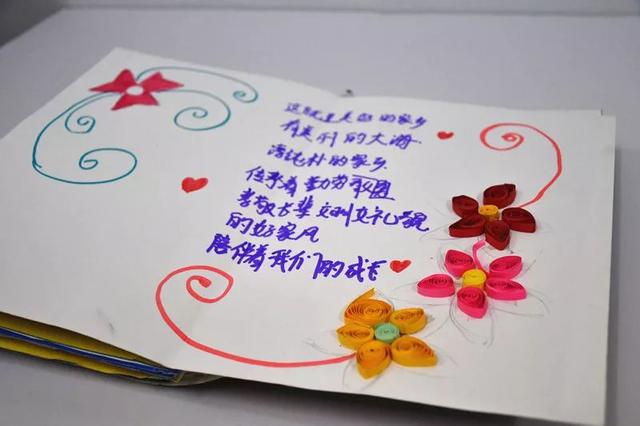 这就是美丽的家乡
有美丽的大海
淳纯朴的家乡
传承着勤劳
孝敬长辈 文明礼貌
的好家风
陪伴着我们的成长